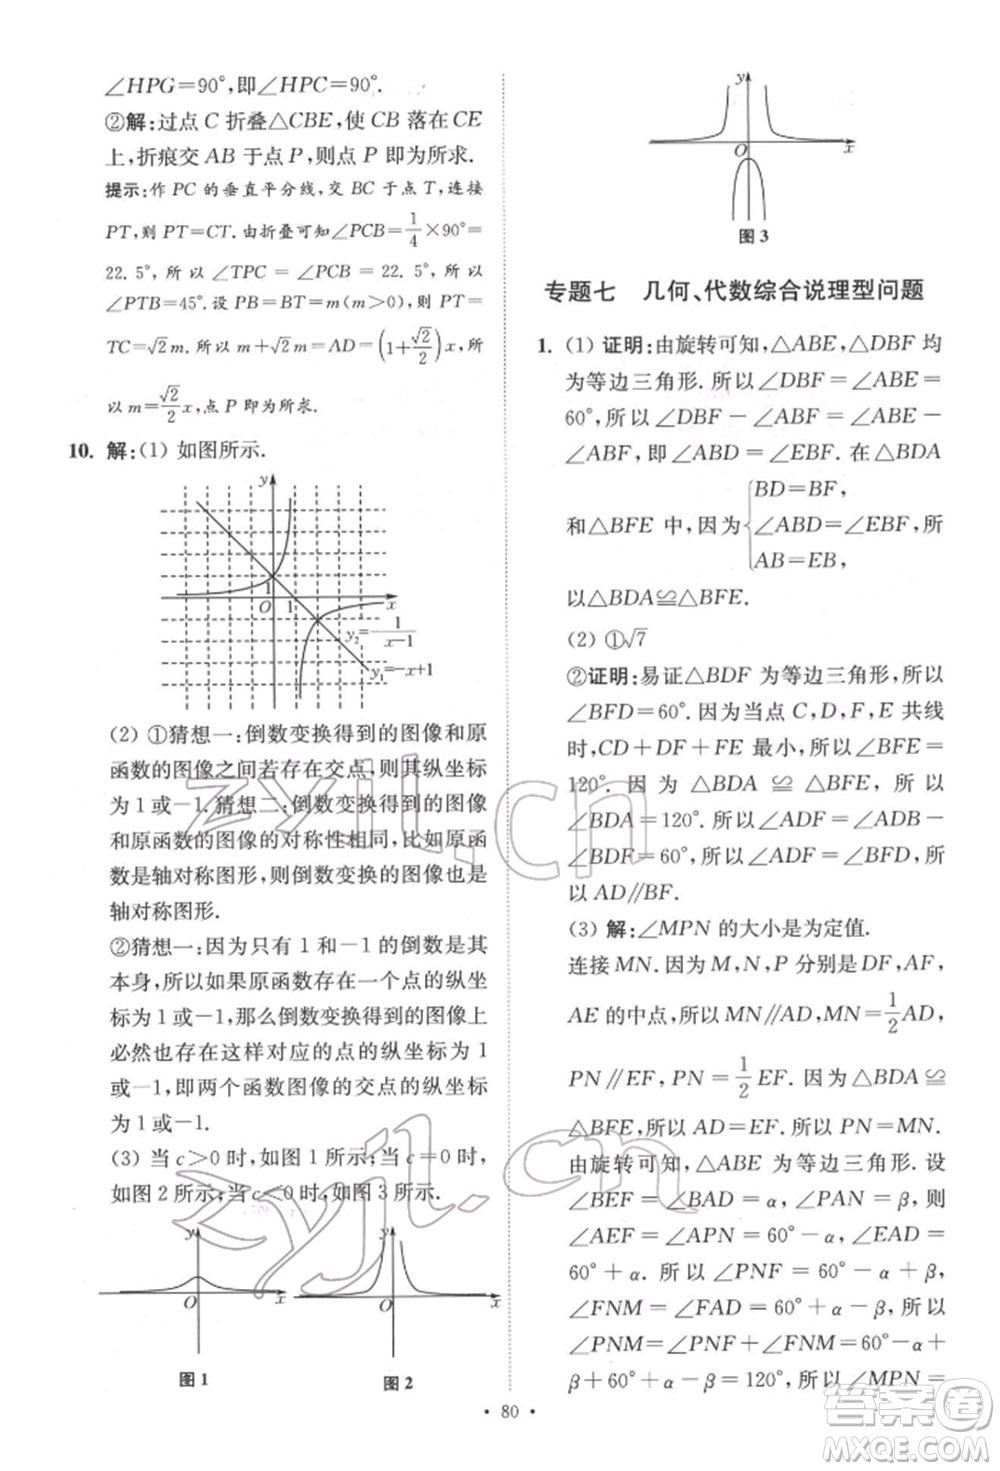 ∠HPG=90°,即∠HPC=90°.
②解:过点 C 折叠△CBE,使 CB 落在 CE
上,折痕交 AB 于点 P,则点 P 即为所求.
提示:作 PC 的垂直平分线,交 BC 于点 T,连接
PT,则 PT=CT.由折叠可知∠PCB=1/4×90°=
22.5°,所以∠TPC=∠PCB=22.5°.所以
∠PTB=45°.设 PB=BT=m(m>0),则 PT=
TC=√2m.所以 m+√2m=AD=(1+√2/2)x,所
以 m=√2/2x,点 P 即为所求.
10. 解:(1) 如图所示.
y
1
O 1 x
y₂=-1/(x-1)
y₁=-x+1
(2) ①猜想一:倒数变换得到的图像和原
函数的图像之间若存在交点,则其纵坐标
为 1 或-1.猜想二:倒数变换得到的图像
和原函数的图像的对称性相同,比如原函
数是轴对称图形,则倒数变换的图像也是
轴对称图形.
②猜想一:因为只有 1 和-1 的倒数是其
本身,所以如果原函数存在一个点的纵坐
标为 1 或-1,那么倒数变换得到的图像上
必然也存在这样对应的点的纵坐标为 1
或-1,即两个函数图像的交点的纵坐标
为 1 或-1.
(3) 当 c>0 时,如图 1 所示;当 c=0 时,
如图 2 所示;当 c<0 时,如图 3 所示.
y
O x
图 1
y
O x
图 2
y
O x
图 3
专题七 几何、代数综合说理型问题
1. (1) 证明:由旋转可知,△ABE,△DBF 均
为等边三角形.所以∠DBF=∠ABE=
60°,所以∠DBF-∠ABF=∠ABE-
∠ABF,即∠ABD=∠EBF.在△BDA
BD=BF,
和△BFE 中,因为{∠ABD=∠EBF,所
AB=EB,
以△BDA≌△BFE.
(2) ①√7
②证明:易证△BDF 为等边三角形,所以
∠BFD=60°.因为当点 C,D,F,E 共线
时,CD+DF+FE 最小,所以∠BFE=
120°.因为△BDA≌△BFE,所以
∠BDA=120°.所以∠ADF=∠ADB-
∠BDF=60°,所以∠ADF=∠BFD,所
以 AD∥BF.
(3) 解:∠MPN 的大小是为定值.
连接 MN.因为 M,N,P 分别是 DF,AF,
AE 的中点,所以 MN∥AD,MN=1/2AD,
PN∥EF,PN=1/2EF.因为△BDA≌
△BFE,所以 AD=EF.所以 PN=MN.
由旋转可知,△ABE 为等边三角形.设
∠BEF=∠BAD=α,∠PAN=β,则
∠AEF=∠APN=60°-α,∠EAD=
60°+α.所以∠PNF=60°-α+β,
∠FNM=∠FAD=60°+α-β,所以
∠PNM=∠PNF+∠FNM=60°-α+
β+60°+α-β=120°,所以∠MPN=
• 80 •
zyjl.cn
zyjl.cn
答案圈
MXQE.COM